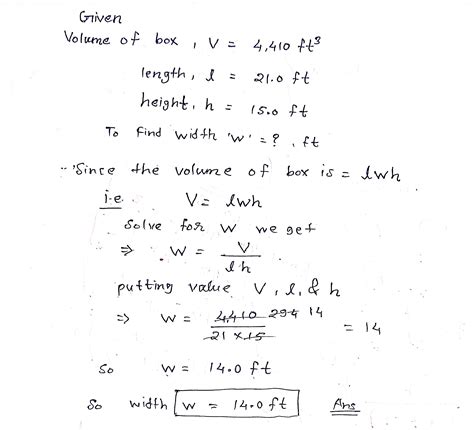 Given
Volume of box, V = 4,410 ft³
length, l = 21.0 ft
height, h = 15.0 ft
To find width 'w' = ?, ft
∵ Since the volume of box is = lwh
i.e. V = lwh
Solve for w we get
⇒ w = V / lh
putting value V, l, & h
⇒ w = 4,410 294 14 / 21 × 15 = 14
So w = 14.0 ft
So width w = 14.0 ft Ans